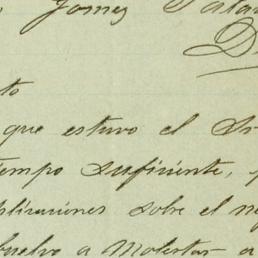 Gomez
to
que estuvo el Sr
tiempo suficiente,
plicaciones sobre el ne
buelvo a molestar a